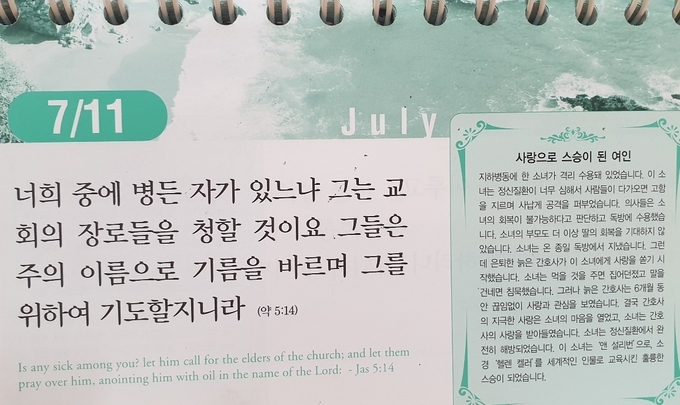 7/11
July
너희 중에 병든 자가 있느냐 그는 교
회의 장로들을 청할 것이요 그들은
주의 이름으로 기름을 바르며 그를
위하여 기도할지니라 (약 5:14)
Is any sick among you? let him call for the elders of the church; and let them
pray over him, anointing him with oil in the name of the Lord: - Jas 5:14
사랑으로 스승이 된 여인
지하병동에 한 소녀가 격리 수용돼 있었습니다. 이 소
녀는 정신질환이 너무 심해서 사람들이 다가오면 고함
을 지르며 사납게 공격을 퍼부었습니다. 의사들은 소
녀의 회복이 불가능하다고 판단하고 독방에 수용했습
니다. 소녀의 부모도 더 이상 딸의 회복을 기대하지 않
았습니다. 소녀는 온 종일 독방에서 지냈습니다. 그런
데 은퇴한 늙은 간호사가 이 소녀에게 사랑을 쏟기 시
작했습니다. 소녀는 먹을 것을 주면 집어던졌고 말을
건네면 침묵했습니다. 그러나 늙은 간호사는 6개월 동
안 끊임없이 사랑과 관심을 보였습니다. 결국 간호사
의 지극한 사랑은 소녀의 마음을 열었고, 소녀는 간호
사의 사랑을 받아들였습니다. 소녀는 정신질환에서 완
전히 해방되었습니다. 이 소녀는 '앤 설리번'으로, 소
경 '헬렌 켈러'를 세계적인 인물로 교육시킨 훌륭한
스승이 되었습니다.